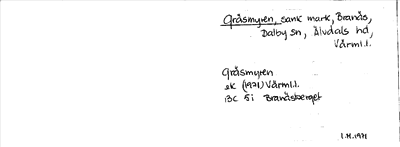 Gråsmyren, sank mark, Branäs,
Dalby sn, Älvdals hd,
Värml.l.
Gråsmyren
ek (1971) Värml.l.
13C 5i Branäsberget
1.H.1971